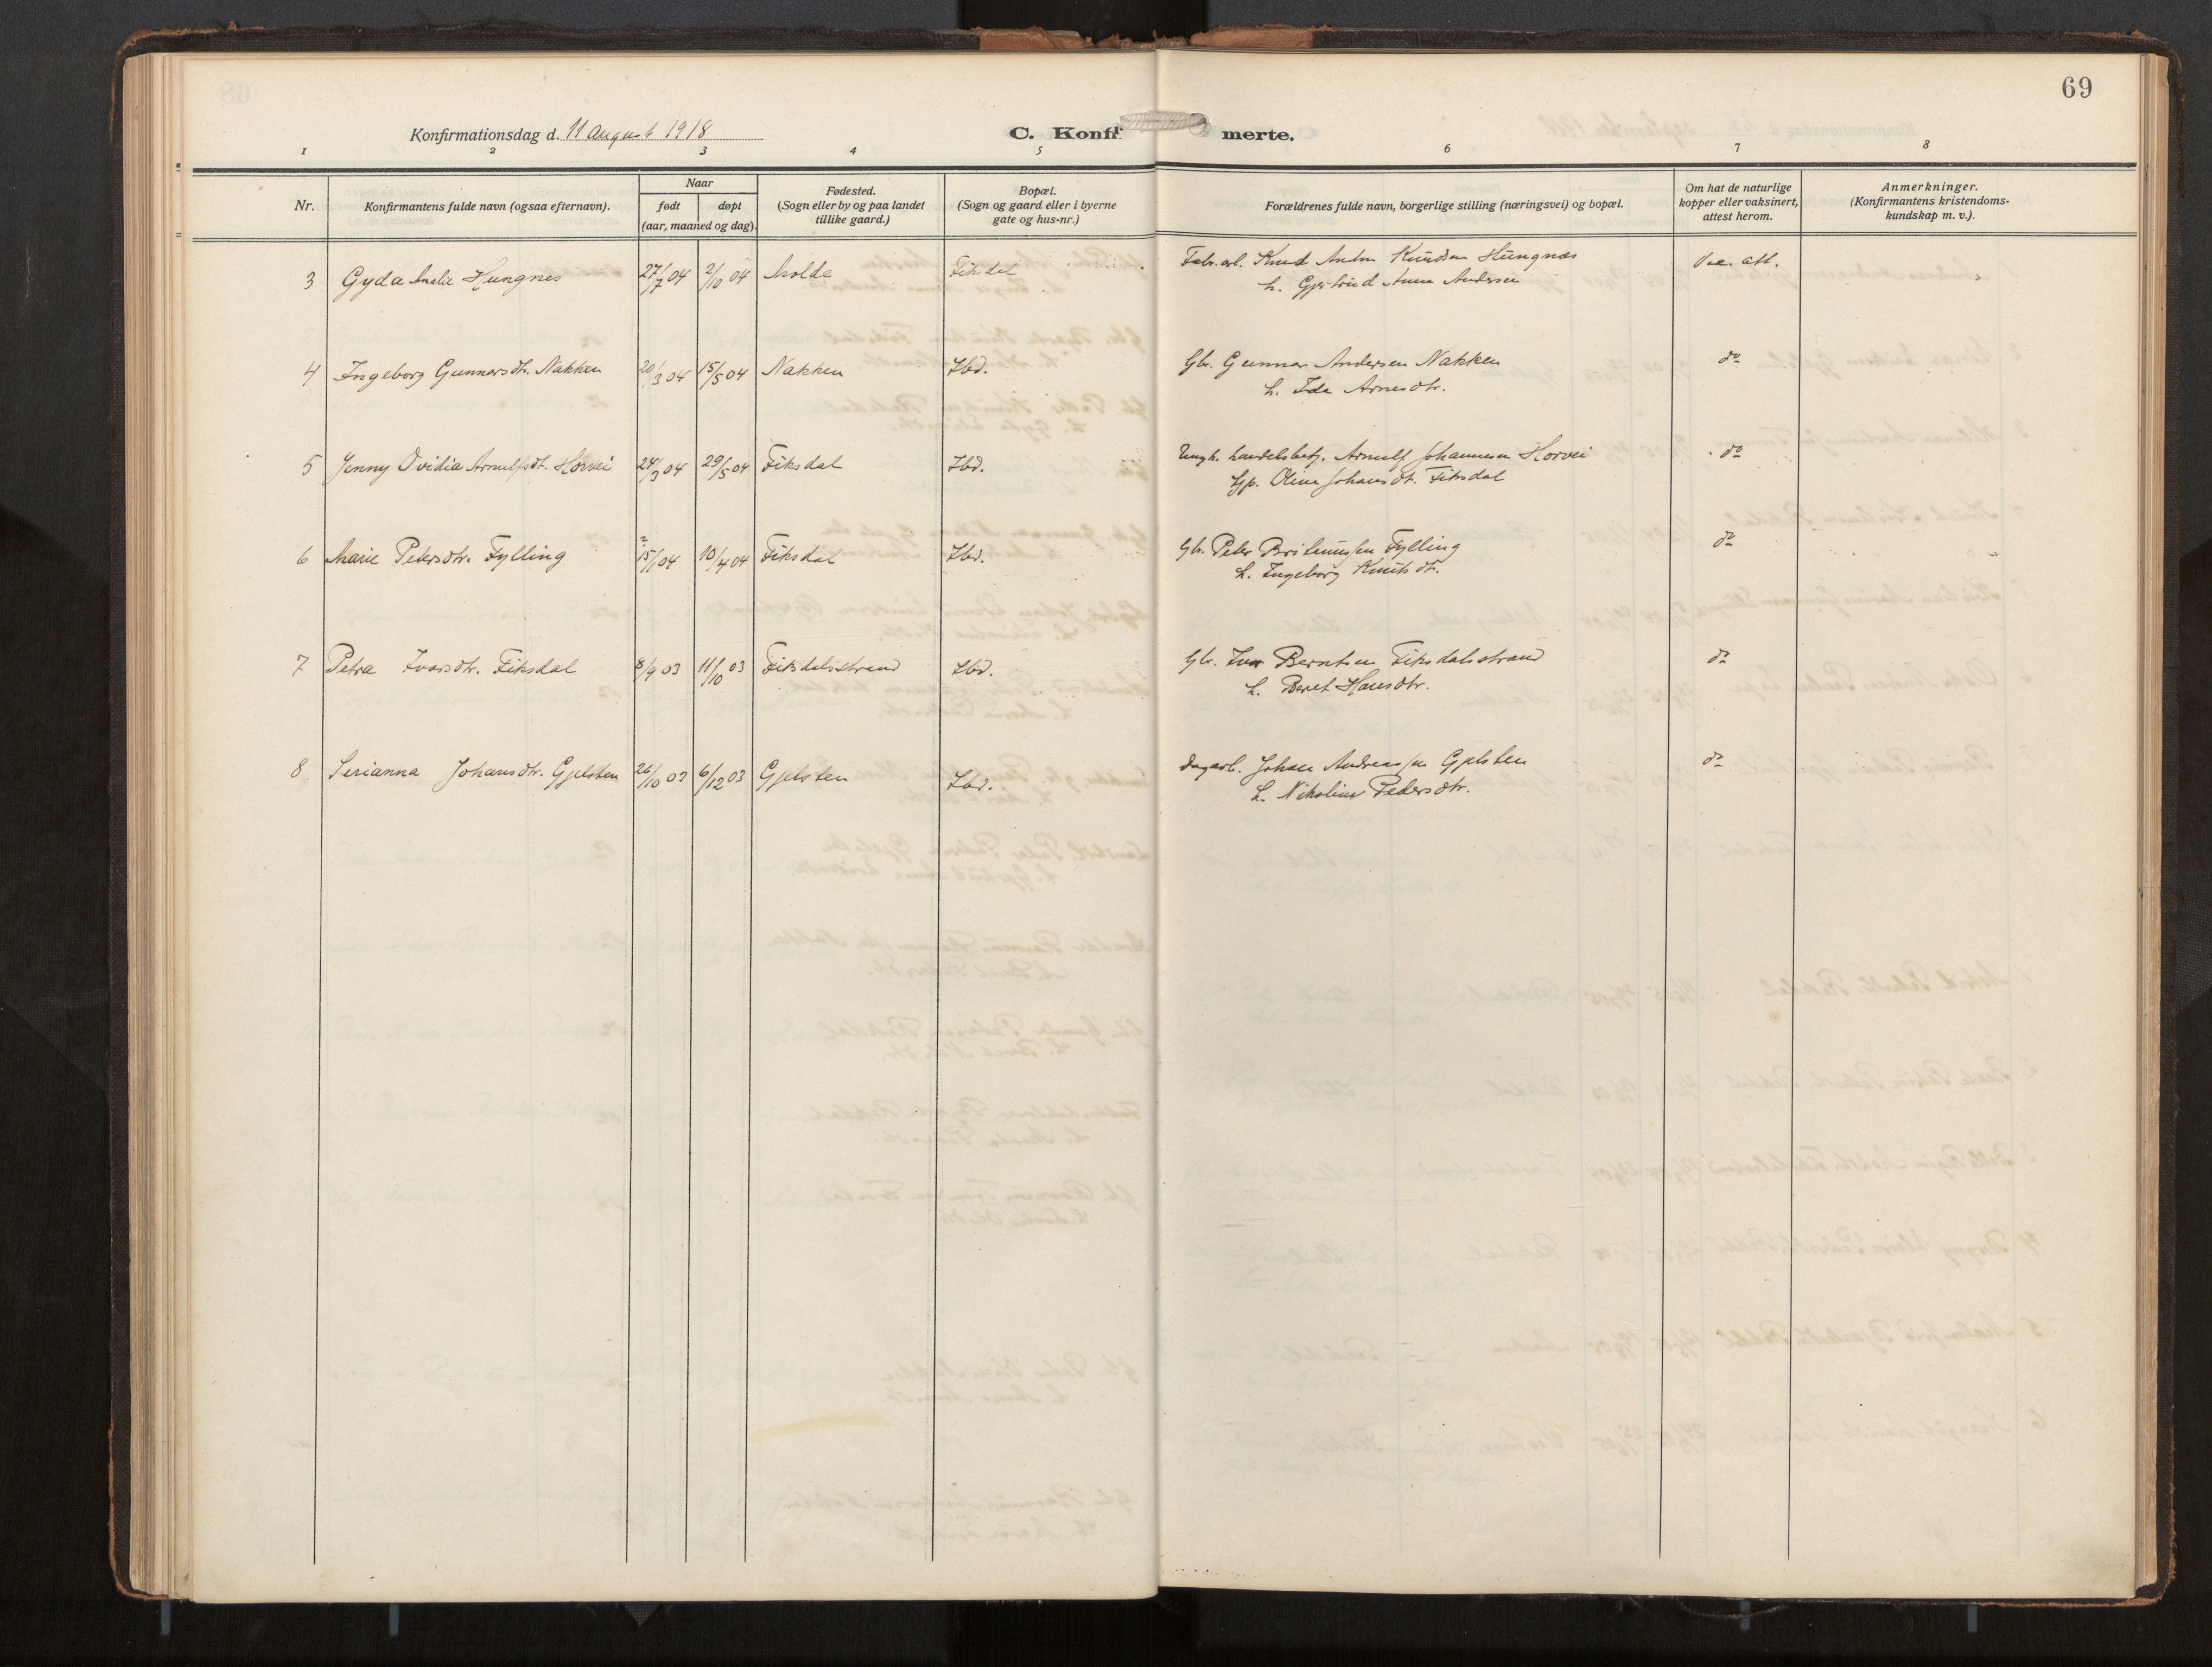 69
Konfirmationsdag d. 11 August 1918
C. Konfir merte.
1 2 3 4 5 6 7 8
Nr.
Konfirmantens fulde navn (ogsaa efternavn).
Naar
født døpt
(aar, maaned og dag).
Fødested.
(Sogn eller by og paa landet
tillike gaard.)
Bopæl.
(Sogn og gaard eller i byerne
gate og hus-nr.)
Forældrenes fulde navn, borgerlige stilling (næringsvei) og bopæl.
Om hat de naturlige
kopper eller vaksinert,
attest herom.
Anmerkninger.
(Konfirmantens kristendoms-
kundskap m. v.).
3 Gyda Amalie Hungnes 27/7 04 2/10 04 Molde Fiksdal Fabr.arb. Knud Anton Knudsen Hungnes Vac. att.
h. Gjertrud Anna Andersen
4 Ingeborg Gunnarsdtr. Nakken 20/3 04 15/5 04 Nakken Ibd. Gbr. Gunnar Andersen Nakken do
h. Ida Arnesdtr.
5 Jenny Ovidia Arnulfsdt. Horvei 24/3 04 29/5 04 Fiksdal Ibd. Ungk. handelsbetj. Arnulf Johannesen Horvei do
Pp. Oline Johansdt. Fiksdal
6 Marie Petersdtr. Fylling 15/1 04 10/4 04 Fiksdal Ibd. Gbr. Peter Fylling do
h. Ingeborg Knutsdt.
7 Petra Ivarsdtr. Fiksdal 8/9 03 11/10 03 Fiksdalsstrand Ibd. Gbr. Ivar Berntsen Fiksdalsstrand do
h. Beret Hansdtr.
8 Serianna Johansdtr. Gjelsten 26/10 03 6/12 03 Gjelsten Ibd. Dagarb. Johan Andreassen Gjelsten do
h. Nikoline Pedersdtr.